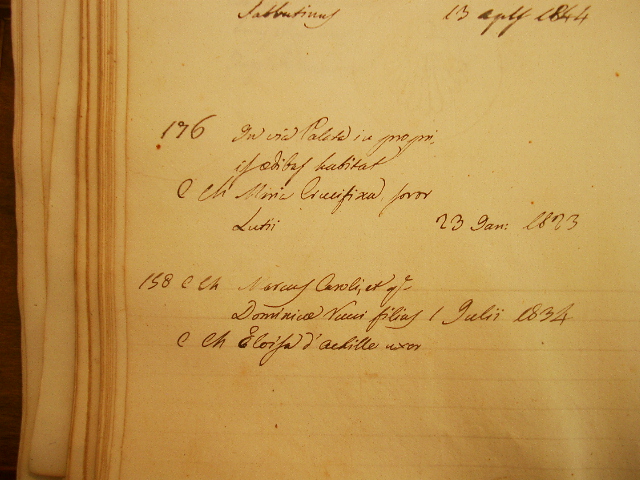 Sabbatinus 13 aplis 1844
176 In via Caleta in propri,
is ædibus habitat
C Ch Maria Crucifixa, soror
Lutii 23 Jan: 1823
158 C Ch Marcus Caroli, et qm
Dominicæ Nucci filius 1 Julii 1834
C Ch Eloisa d'Achille uxor